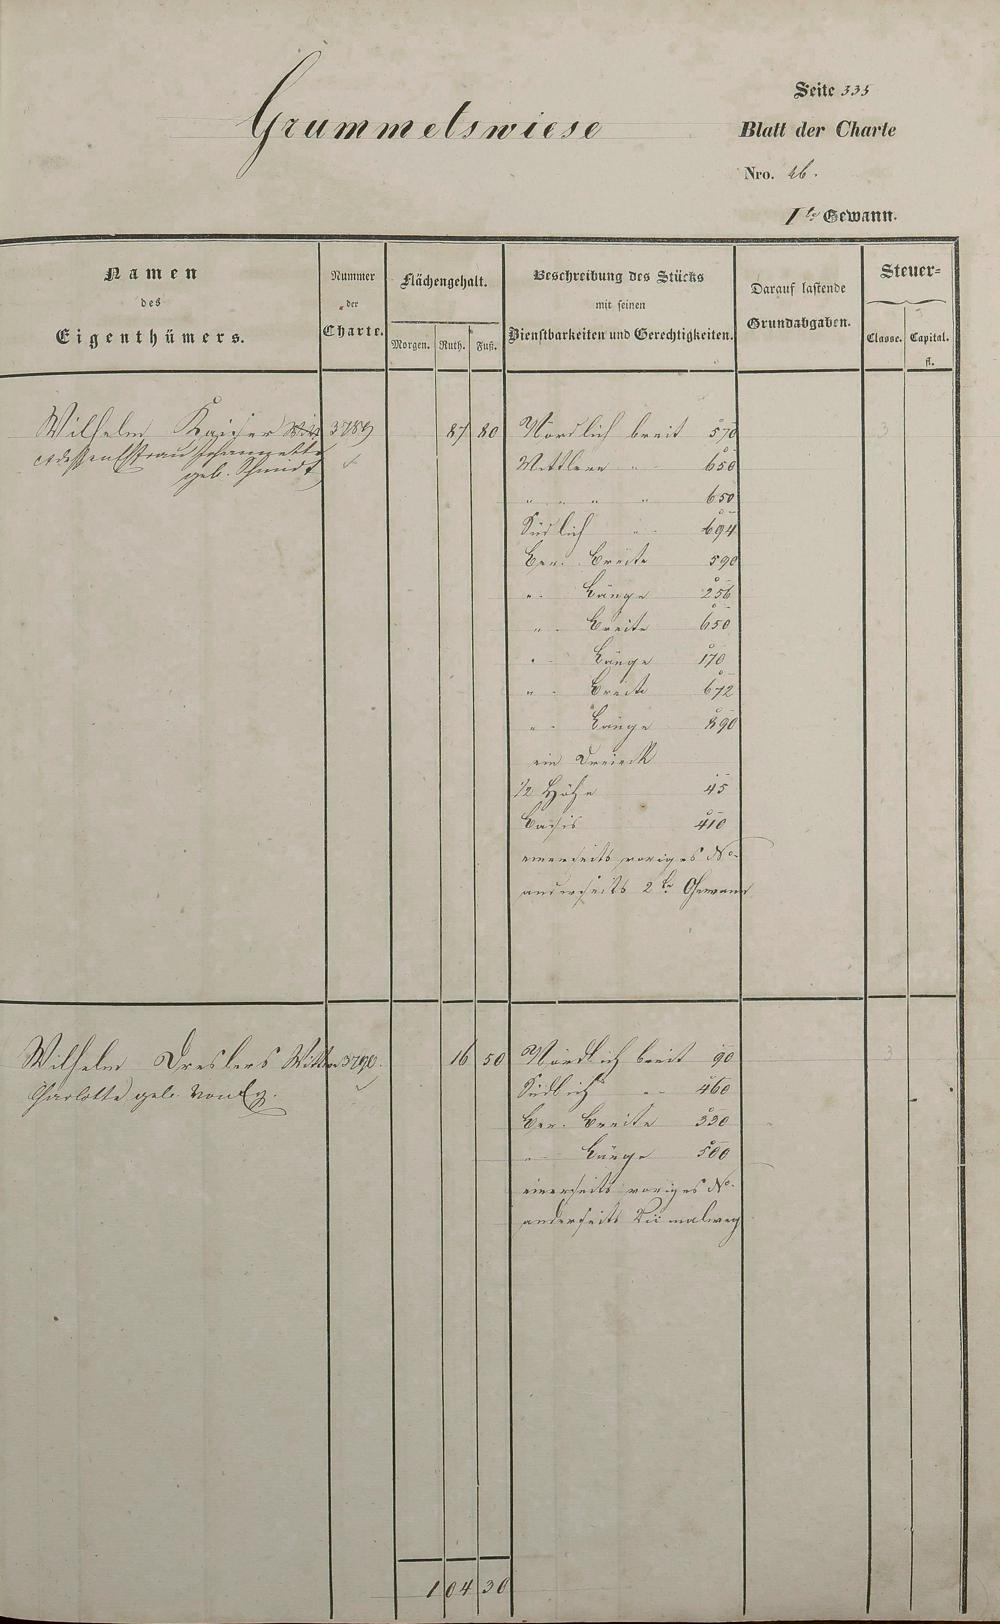 Grummetswiese
Seite 335
Blatt der Charte
Nro. 26.
1te Gewann.
Namen
des
Eigenthümers.
Nummer
der
Charte.
Flächengehalt.
Morgen. Ruth. Fuß.
Beschreibung des Stücks
mit seinen
Dienstbarkeiten und Gerechtigkeiten.
Darauf lastende
Grundabgaben.
Steuer-
Classe. Capital.
fl.
Wilhelm Kaiser 3789 87 80 Nördlich breit 570 3
et dessen Ehefrau Johannette
geb. Schmidt
Mittlere " 650
" " " " 650
Südlich " 694
Ber. Breite 590
" Länge 256
" Breite 650
" Länge 170
" Breite 672
" Länge 890
ein Dreieck
1/2 Höhe 45
Basis 410
einerseits voriges No.
anderseits 2te Gewann
Wilhelm Dreslers Wittwe 3790. 16 50 Nördlich breit 90 3
Charlotte geb.
Südlich " 460
Ber. Breite 330
" Länge 500
einerseits voriges No.
anderseits
1 04 30